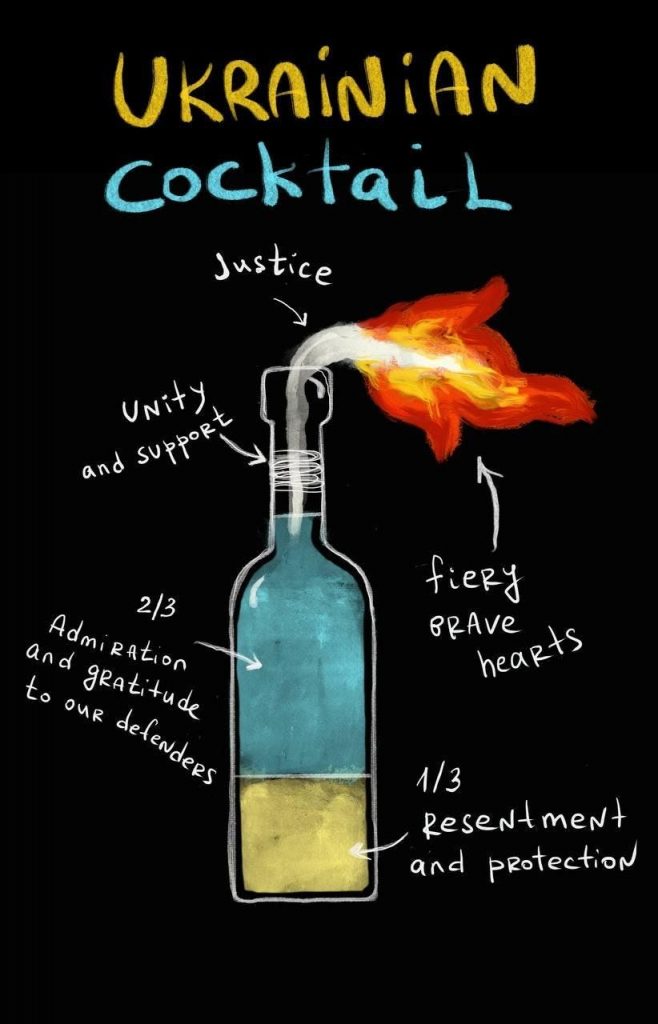 UKRAINIAN
COCKTAIL
Justice
Unity
and support
fiery
BRAVE
hearts
2/3
Admiration
and gratitude
to our defenders
1/3
Resentment
and protection